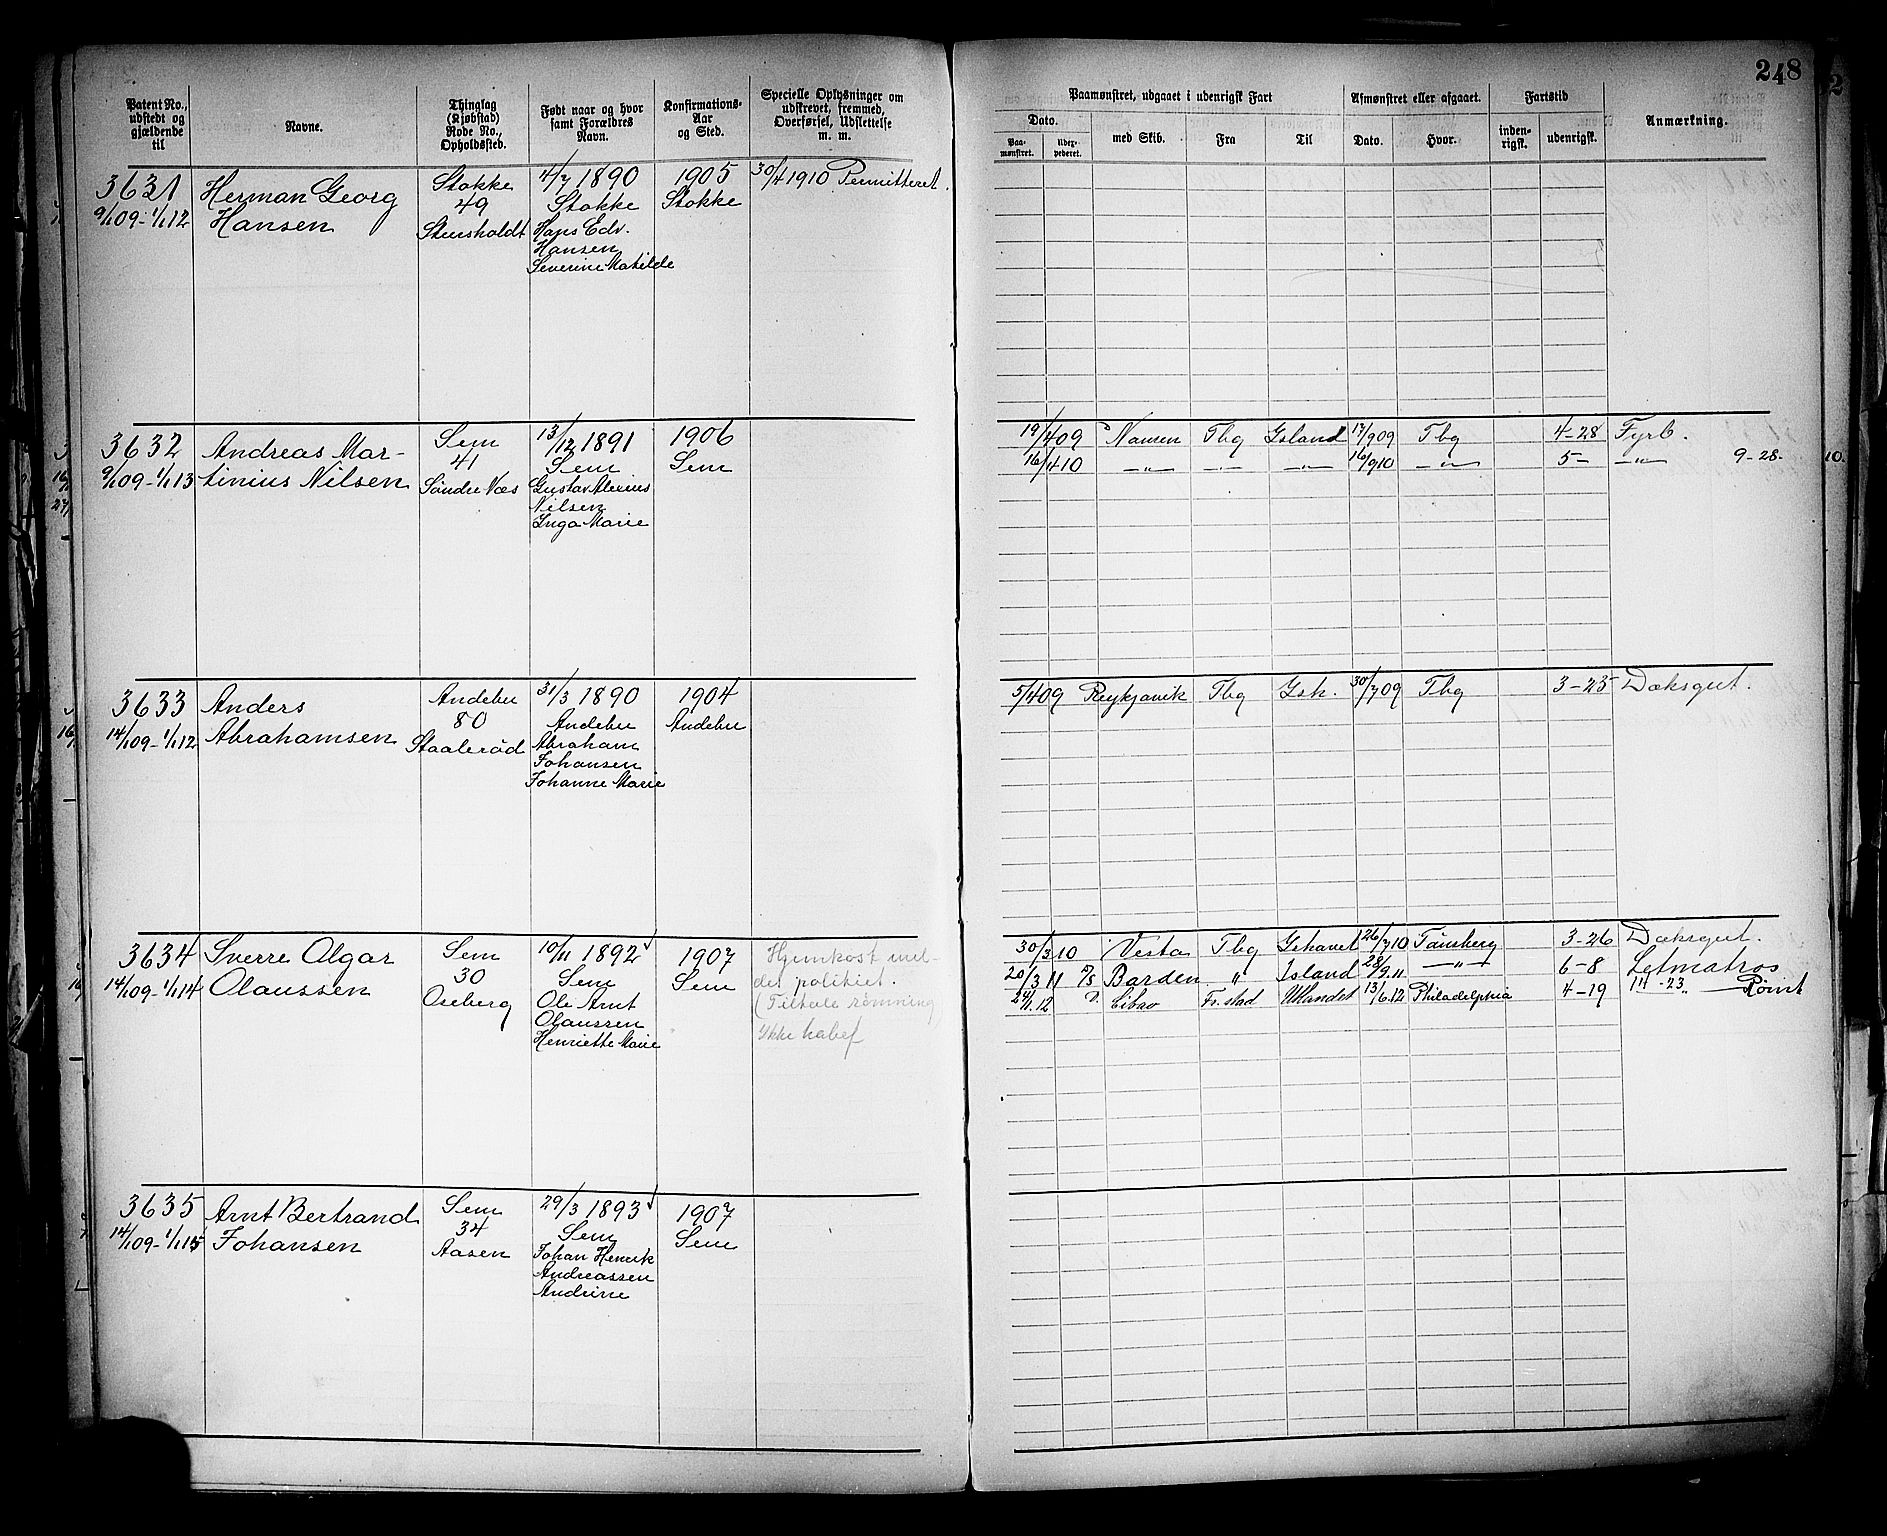 248
Patent No., udstedt og gjældende til
Navne.
Thinglag (Kjøbstad) Rode No., Opholdssted.
Født naar og hvor samt Forældres Navn.
Konfirmations-Aar og Sted.
Specielle Oplysninger om udskrevet, fremmed, Overførsel, Udslettelse m. m.
Paamønstret, udgaaet i udenrigsk Fart
Afmønstret eller afgaaet.
Fartstid
Anmærkning.
Dato.
Paa-mønstret.
Uder-pederet.
med Skib.
Fra
Til
Dato.
Hvor.
inden-rigsk.
udenrigsk.
3631
9/1 09 - 1/1 12
Herman Georg
Hansen
Stokke
49
Stensholdt
4/7 1890
Stokke
Hans Edv.
Hansen
Severine Matilde
1905
Stokke
30/4 1910 Permitteret.
3632
9/1 09 - 1/1 13
Andreas Mar-
tinius Nilsen
Sem
41
Søndre Næs
13/12 1891
Sem
Gustav Alexius
Nilsen
Inga Marie
1906
Sem
19/4 09 Nansen Tbg Island 17/9 09 Tbg 4-28 Fyrb.
16/4 10 -„- -„- -„- 16/9 10 -„- 5- -„- 9-28-
3633
14/1 09 - 1/1 12
Anders
Abrahamsen
Andebu
80
Staalerød
31/3 1890
Andebu
Abraham
Johansen
Johanne Marie
1904
Andebu
5/4 09 Reykjavik Tbg Ish. 30/7 09 Tbg 3-25 Dæksgut.
3634
14/1 09 - 1/1 14
Sverre Algar
Olaussen
Sem
30
Oseberg
10/11 1892
Sem
Ole Arnt
Olaussen
Henriette Marie
1907
Sem
Hjemkost mel-
det politiet.
(Tiltale rømning)
Ikke habef
30/3 10 Vesta Tbg Ishavet 26/7 10 Tønsberg 3-26 Dæksgut.
20/3 11 Barden „ Island 28/9 11 -„- 6-8 Letmatros
24/1 12 Libav Fr.stad Utlandet 13/6 12 Philadelphia 4-19 1 14-23 Rømt
3635
14/1 09 - 1/1 15
Arnt Bertrand
Johansen
Sem
34
Aasen
29/3 1893
Sem
Johan Henrik
Andreassen
Andrine
1907
Sem